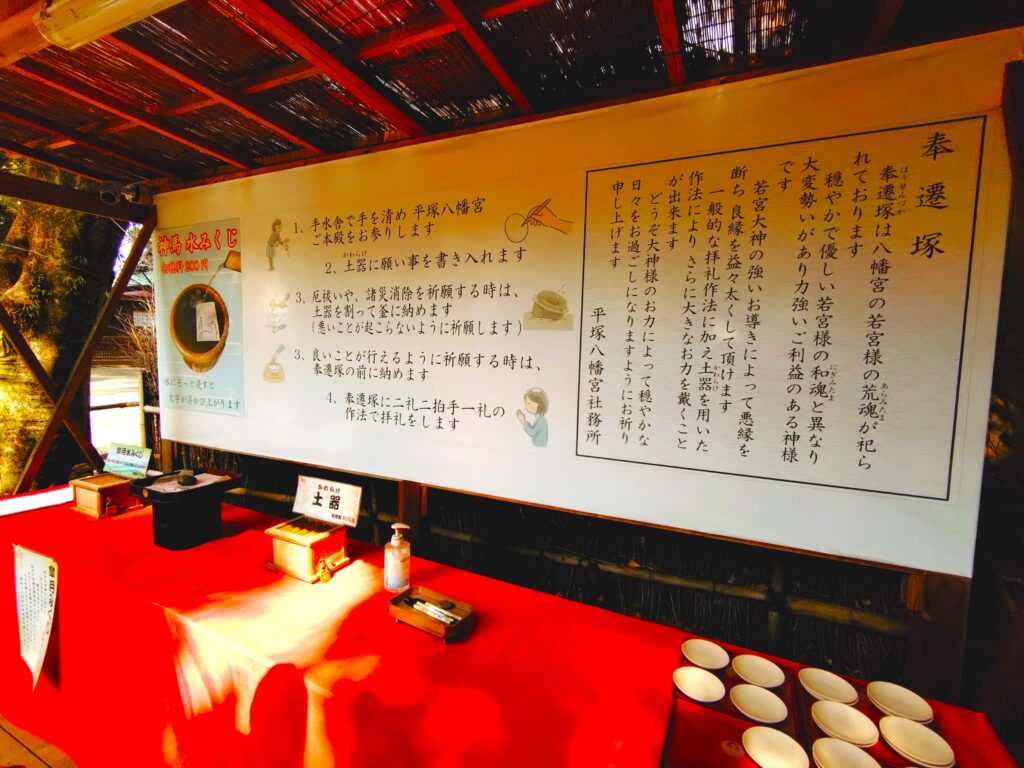 水みくじ
初穂料 200円
水にそっと浸すと
文字が浮かび上がります
1、手水舎で手を清め 平塚八幡宮
ご本殿をお参りします
かわらけ
2、土器に願い事を書き入れます
3、厄祓いや、諸災消除を祈願する時は、
土器を割って釜に納めます
(悪いことが起こらないように祈願します)
3、良いことが行えるように祈願する時は、
奉遷塚の前に納めます
4、奉遷塚に二礼二拍手一礼の
作法で拝礼をします
奉遷塚
ほうせんづか
奉遷塚は八幡宮の若宮様の荒魂が祀ら
れております
にぎみたま
穏やかで優しい若宮様の和魂と異なり
大変勢いがあり力強いご利益のある神様
です
若宮大神の強いお導きによって悪縁を
断ち 良縁を益々太くして頂けます
かわらけ
一般的な拝礼作法に加え土器を用いた
作法により さらに大きなお力を戴くこと
が出来ます
どうぞ大神様のお力によって穏やかな
日々をお過ごしになりますようにお祈り
申し上げます
平塚八幡宮社務所
水みくじ
かわらけ
土器